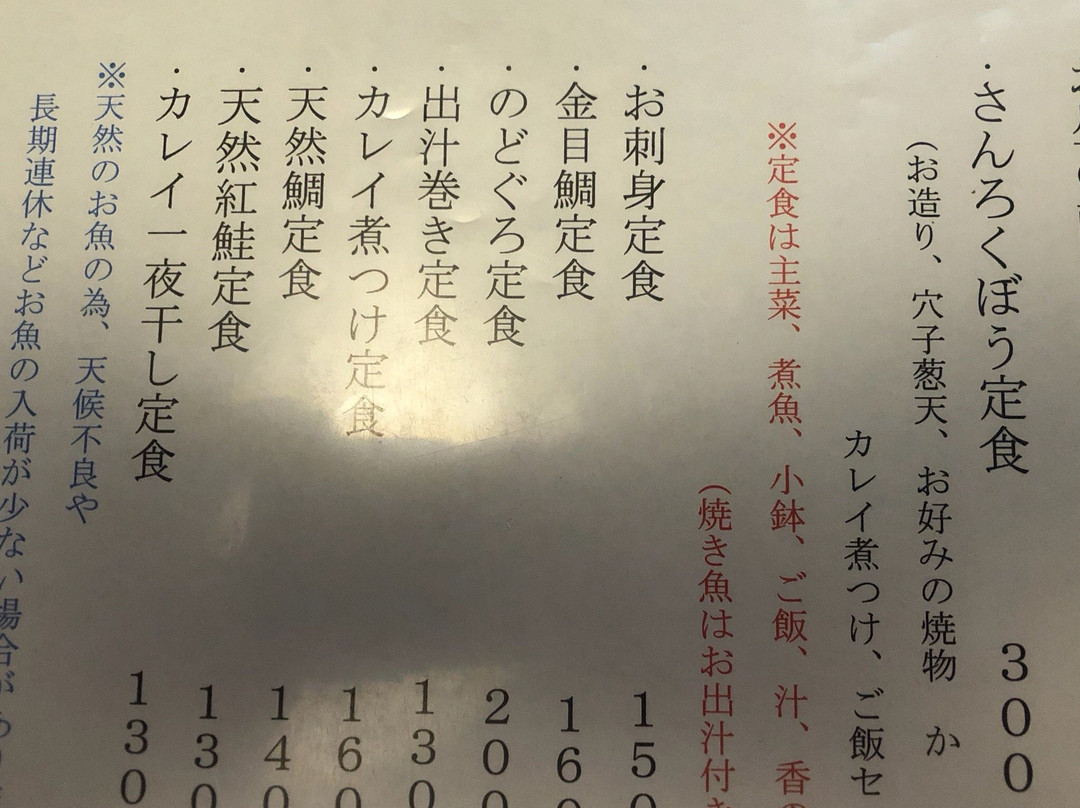 ・さんろくぼう定食 300
（お造り、穴子葱天、お好みの焼物 か
カレイ煮つけ、ご飯セ
※定食は主菜、煮魚、小鉢、ご飯、汁、香の
（焼き魚はお出汁付き
・お刺身定食 150
・金目鯛定食 160
・のどぐろ定食 200
・出汁巻き定食 130
・カレイ煮つけ定食 160
・天然鯛定食 140
・天然紅鮭定食 130
・カレイ一夜干し定食 130
※天然のお魚の為、天候不良や
長期連休などお魚の入荷が少ない場合が